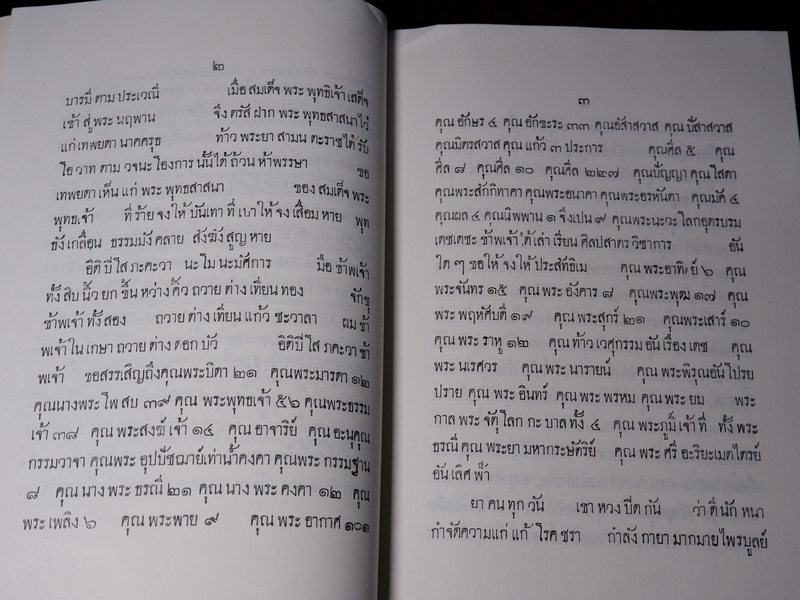 ๒
บารมี ตาม ประเวณี เมื่อ สมเด็จ พระ พุทธิเจ้า เสด็จ
เข้า สู่ พระ นฤพาน จึง ตรัส ฝาก พระ พุทธสาสนาไว้
แก่ เทพยดา นาคครุธ ท้าว พระยา สามน ตะราชได้ รับ
โอ วาท ตาม วจนะ โองการ นั้นได้ ถ้วน ห้าพรรษา ขอ
เทพยดา เห็น แก่ พระ พุทธสาสนา ของ สมเด็จ พระ
พุทธเจ้า ที่ ร้าย จงให้ บันเทา ที่ เบาให้ จง เสื่อม หาย พุท
ธังเกลื่อน ธรรมมัง คลาย สังฆังสูญ หาย
อิติ ปิ โส ภะคะวา นะ โม นะมัศการ มือ ข้าพเจ้า
ทั้ง สิบ นิ้ว ยก ขึ้น หว่าง คิ้ว ถวาย ต่าง เทียน ทอง จักขุ
ข้าพเจ้า ทั้ง สอง ถวาย ต่าง เทียน แก้ว ชะวาลา ผม ข้า
พเจ้า ใน เกษา ถวาย ต่าง ดอก บัว อิติปิ โส ภะคะวา ข้า
พเจ้า ขอสรรเสิญถึงคุณพระบิดา ๒๑ คุณพระมารดา ๑๒
คุณนางพระ โพ สบ ๓๙ คุณ พระพุทธเจ้า ๕๖ คุณพระธรรม
เจ้า ๓๘ คุณ พระสงฆ์ เจ้า ๑๔ คุณ อาจาริย์ คุณ อะนุคุณ
กรรมวาจา คุณพระ อุปปัชฌาย์เท่าน้ำคงคา คุณพระ กรรมฐาน
๘ คุณ นาง พระ ธรณี ๒๑ คุณ นาง พระ คงคา ๑๒ คุณ
พระ เพลิง ๖ คุณ พระพาย ๙ คุณ พระ อากาศ ๑๐๑
๓
คุณ อักษร ๔ คุณ อักขะระ ๓๓ คุณอัสาสวาส คุณ ปัสาสวาส
คุณมิตรสวาส คุณ แก้ว ๓ ประการ คุณศีล ๕ คุณ
ศีล ๘ คุณศีล ๑๐ คุณศีล ๒๒๗ คุณปัญญา คุณ โสดา
คุณพระสักกิทาคา คุณพระอนาคา คุณพระอรหันตา คุณมัค ๔
คุณผล ๔ คุณนิพพาน ๑ จึงเปน ๙ คุณพระนะวะ โลกอุตรบรม
เตชเตชะ ข้าพเจ้า ได้ เล่า เรียน ศิลปสาตร วิชาการ อัน
ใด ๆ ขอให้ จงให้ ประสิทธิเม คุณ พระอาทิตย์ ๖ คุณ
พระจันทร ๑๕ คุณ พระ อังคาร ๘ คุณพระพุฒ ๑๗ คุณ
พระ พฤหัศบดี ๑๙ คุณ พระสุกร์ ๒๑ คุณพระเสาร์ ๑๐
คุณ พระ ราหู ๑๒ คุณ ท้าว เวศกรรม อัน เรือง เดช คุณ
พระ นเรศวร คุณ พระ นารายน์ คุณ พระพิรุณอัน โปรย
ปราย คุณ พระ อินทร์ คุณ พระ พรหม คุณ พระ ยม พระ
กาล พระ จัตุโลก กะ บาล ทั้ง ๔ คุณ พระภูมิ์ เจ้า ที่ ทั้ง พระ
ธรณี คุณ พระยา มหากระษัตริย์ คุณ พระ ศรี อะริยะเมดไตรย์
อัน เลิศ
ยา คน ทุก วัน เขา หวง ปิด กัน ว่า ดี นัก หนา
กำจัดความแก่ แก้ โรค ชรา กำลัง กายา มากมาย ไพรบูลย์